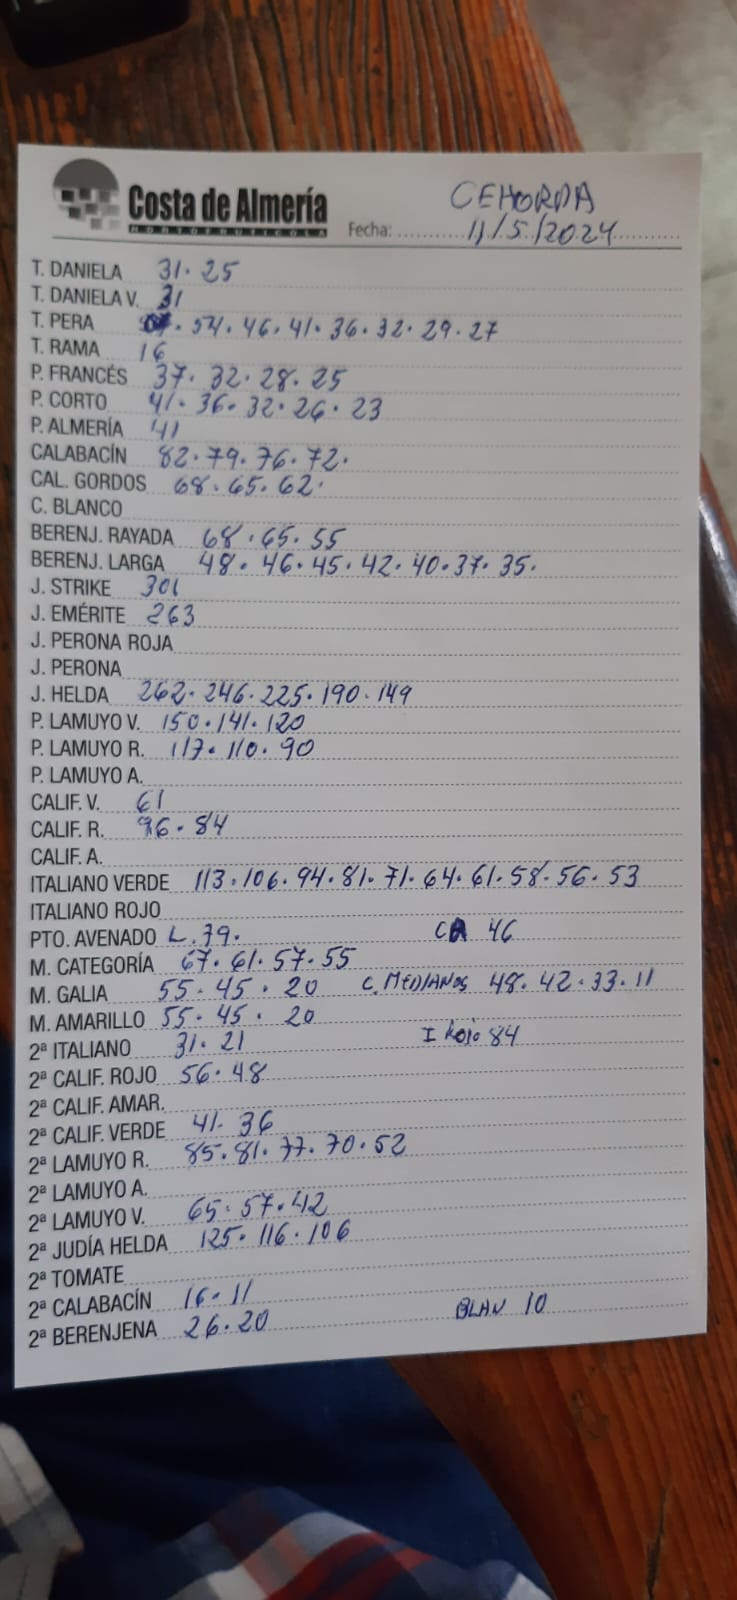 Costa de Almería
HORTOFRUTÍCOLA
CEHORPA
Fecha: 11/5/2024
T. DANIELA 31. 25
T. DANIELA V. 31
T. PERA . 54. 46. 41. 36. 32. 29. 27
T. RAMA 16
P. FRANCÉS 37. 32. 28. 25
P. CORTO 41. 36. 32. 26. 23
P. ALMERÍA 41
CALABACÍN 82. 79. 76. 72.
CAL. GORDOS 68. 65. 62.
C. BLANCO
BERENJ. RAYADA 68. 65. 55
BERENJ. LARGA 48. 46. 45. 42. 40. 37. 35.
J. STRIKE 301
J. EMÉRITE 263
J. PERONA ROJA
J. PERONA
J. HELDA 262. 246. 225. 190. 149
P. LAMUYO V. 150. 141. 120
P. LAMUYO R. 117. 110. 90
P. LAMUYO A.
CALIF. V. 61
CALIF. R. 96. 84
CALIF. A.
ITALIANO VERDE 113. 106. 94. 81. 71. 64. 61. 58. 56. 53
ITALIANO ROJO
PTO. AVENADO L. 79. CA 46
M. CATEGORÍA 67. 61. 57. 55
M. GALIA 55. 45. 20 C. MEDIANOS 48. 42. 33. 11
M. AMARILLO 55. 45. 20
2ª ITALIANO 31. 21 I Rojo 84
2ª CALIF. ROJO 56. 48
2ª CALIF. AMAR.
2ª CALIF. VERDE 41. 36
2ª LAMUYO R. 85. 81. 77. 70. 52
2ª LAMUYO A.
2ª LAMUYO V. 65. 57. 42
2ª JUDÍA HELDA 125. 116. 106
2ª TOMATE
2ª CALABACÍN 16. 11
2ª BERENJENA 26. 20 BLAN 10